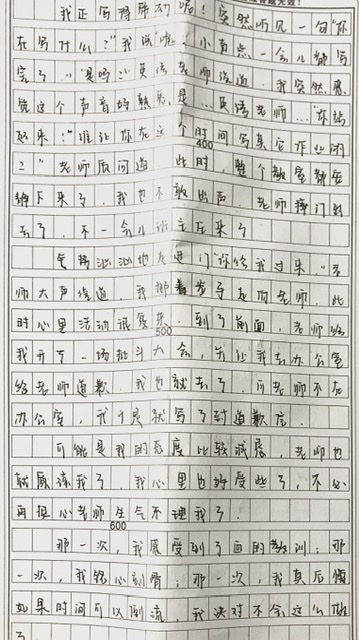 我正写得带劲呢！突然听见一句"你
在写对什么？"我说"嘘！小声点一会儿都写
完了。""是吗？"英语老师说道。我突然感
觉这个声音好熟悉是…英语老师…"你站
起来？""谁让你在这个时间写其它作业的
？"老师质问道。此时，整个教室都安
静下来了。我也不敢出声。老师摔门就
400
去了，不一会儿班主任来了
气势汹汹地走进门"你给我过来。"老
师大声说道。我挪着步子走向老师，此
时心里活动很复杂。到了前面，老师给
500
我开了一场批斗大会，并让我去办公室
给老师道歉。我也就去了。可老师不在
办公室，我于是就写了封道歉信。
可能是我的态度比较诚恳，老师也
就原谅我了。我心里也好受些了，不必
再担心老师生气不理我了。
600
那一次，我感受到了血的教训；那
一次，我铭心刻骨；那一次，我真后悔
如果时间可以倒流，我决对不会这么做
了